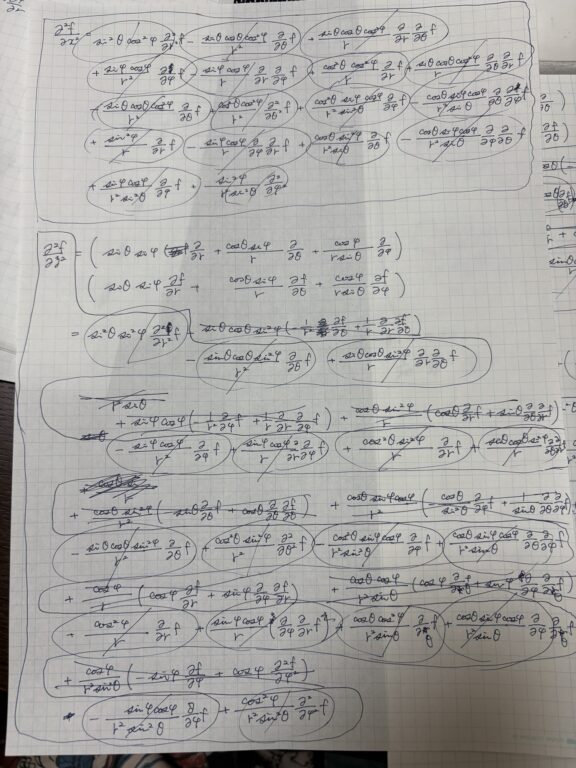 ∂²f/∂x² = sin²θ cos²φ ∂²/∂r² f - sinθ cosθ cos²φ/r² ∂/∂θ f + sinθ cosθ cos²φ/r ∂/∂r ∂/∂θ f
+ sinφ cosφ/r² ∂/∂φ f - sinφ cosφ/r ∂/∂r ∂/∂φ f + cos²θ cos²φ/r ∂/∂r f + sinθ cosθ cos²φ/r ∂/∂θ ∂/∂r f
- sinθ cosθ cos²φ/r² ∂/∂θ f + cos²θ cos²φ/r² ∂²/∂θ² f + cos²θ sinφ cosφ/r² sin²θ ∂/∂φ f - cosθ sinφ cosφ/r² sinθ ∂/∂θ ∂/∂φ f
+ sin²φ/r ∂/∂r f - sinφ cosφ/r ∂/∂φ ∂/∂r f + cosθ sin²φ/r² sinθ ∂/∂θ f - cosθ sinφ cosφ/r² sinθ ∂/∂φ ∂/∂θ f
+ sinφ cosφ/r² sin²θ ∂/∂φ f + sin²φ/r² sin²θ ∂²/∂φ²
∂²f/∂y² = ( sinθ sinφ ∂/∂r + cosθ sinφ/r ∂/∂θ + cosφ/r sinθ ∂/∂φ )
( sinθ sinφ ∂f/∂r + cosθ sinφ/r ∂f/∂θ + cosφ/r sinθ ∂f/∂φ )
= sin²θ sin²φ ∂²/∂r² f + sinθ cosθ sin²φ ( -1/r² ∂f/∂θ + 1/r ∂/∂r ∂f/∂θ )
- sinθ cosθ sin²φ/r² ∂/∂θ f + sinθ cosθ sin²φ/r ∂/∂r ∂/∂θ f
+ sinφ cosφ ( -1/r² ∂/∂φ f + 1/r ∂/∂r ∂/∂φ f ) + cosθ sin²φ/r ( cosθ ∂/∂r f + sinθ ∂/∂θ ∂/∂r f )
- sinφ cosφ/r² ∂/∂φ f + sinφ cosφ/r ∂/∂r ∂/∂φ f + cos²θ sin²φ/r ∂/∂r f
+ cosθ sin²φ/r² ( -sinθ ∂f/∂θ + cosθ ∂/∂θ ∂f/∂θ ) + cosθ sinφ cosφ/r²
- sinθ cosθ sin²φ/r² ∂/∂θ f + cos²θ sin²φ/r² ∂²/∂θ² f - cos²θ sinφ cosφ/r² sin²θ ∂/∂φ f + cosθ sinφ cosφ/r² sinθ ∂/∂θ ∂/∂φ f
+ cosφ/r ( cosφ ∂f/∂r + sinφ ∂/∂φ ∂f/∂r ) + cosθ cosφ/r² sinθ
+ cos²φ/r ∂/∂r f + sinφ cosφ/r ∂/∂φ ∂/∂r f + cosθ cos²φ/r² sinθ ∂/∂θ f + cosθ sinφ cosφ/r² sinθ ∂/∂φ ∂/∂θ
+ cosφ/r² sin²θ ( -sinφ ∂f/∂φ + cosφ ∂²f/∂φ² )
- sinφ cosφ/r² sin²θ ∂/∂φ f + cos²φ/r² sin²θ ∂²/∂φ² f